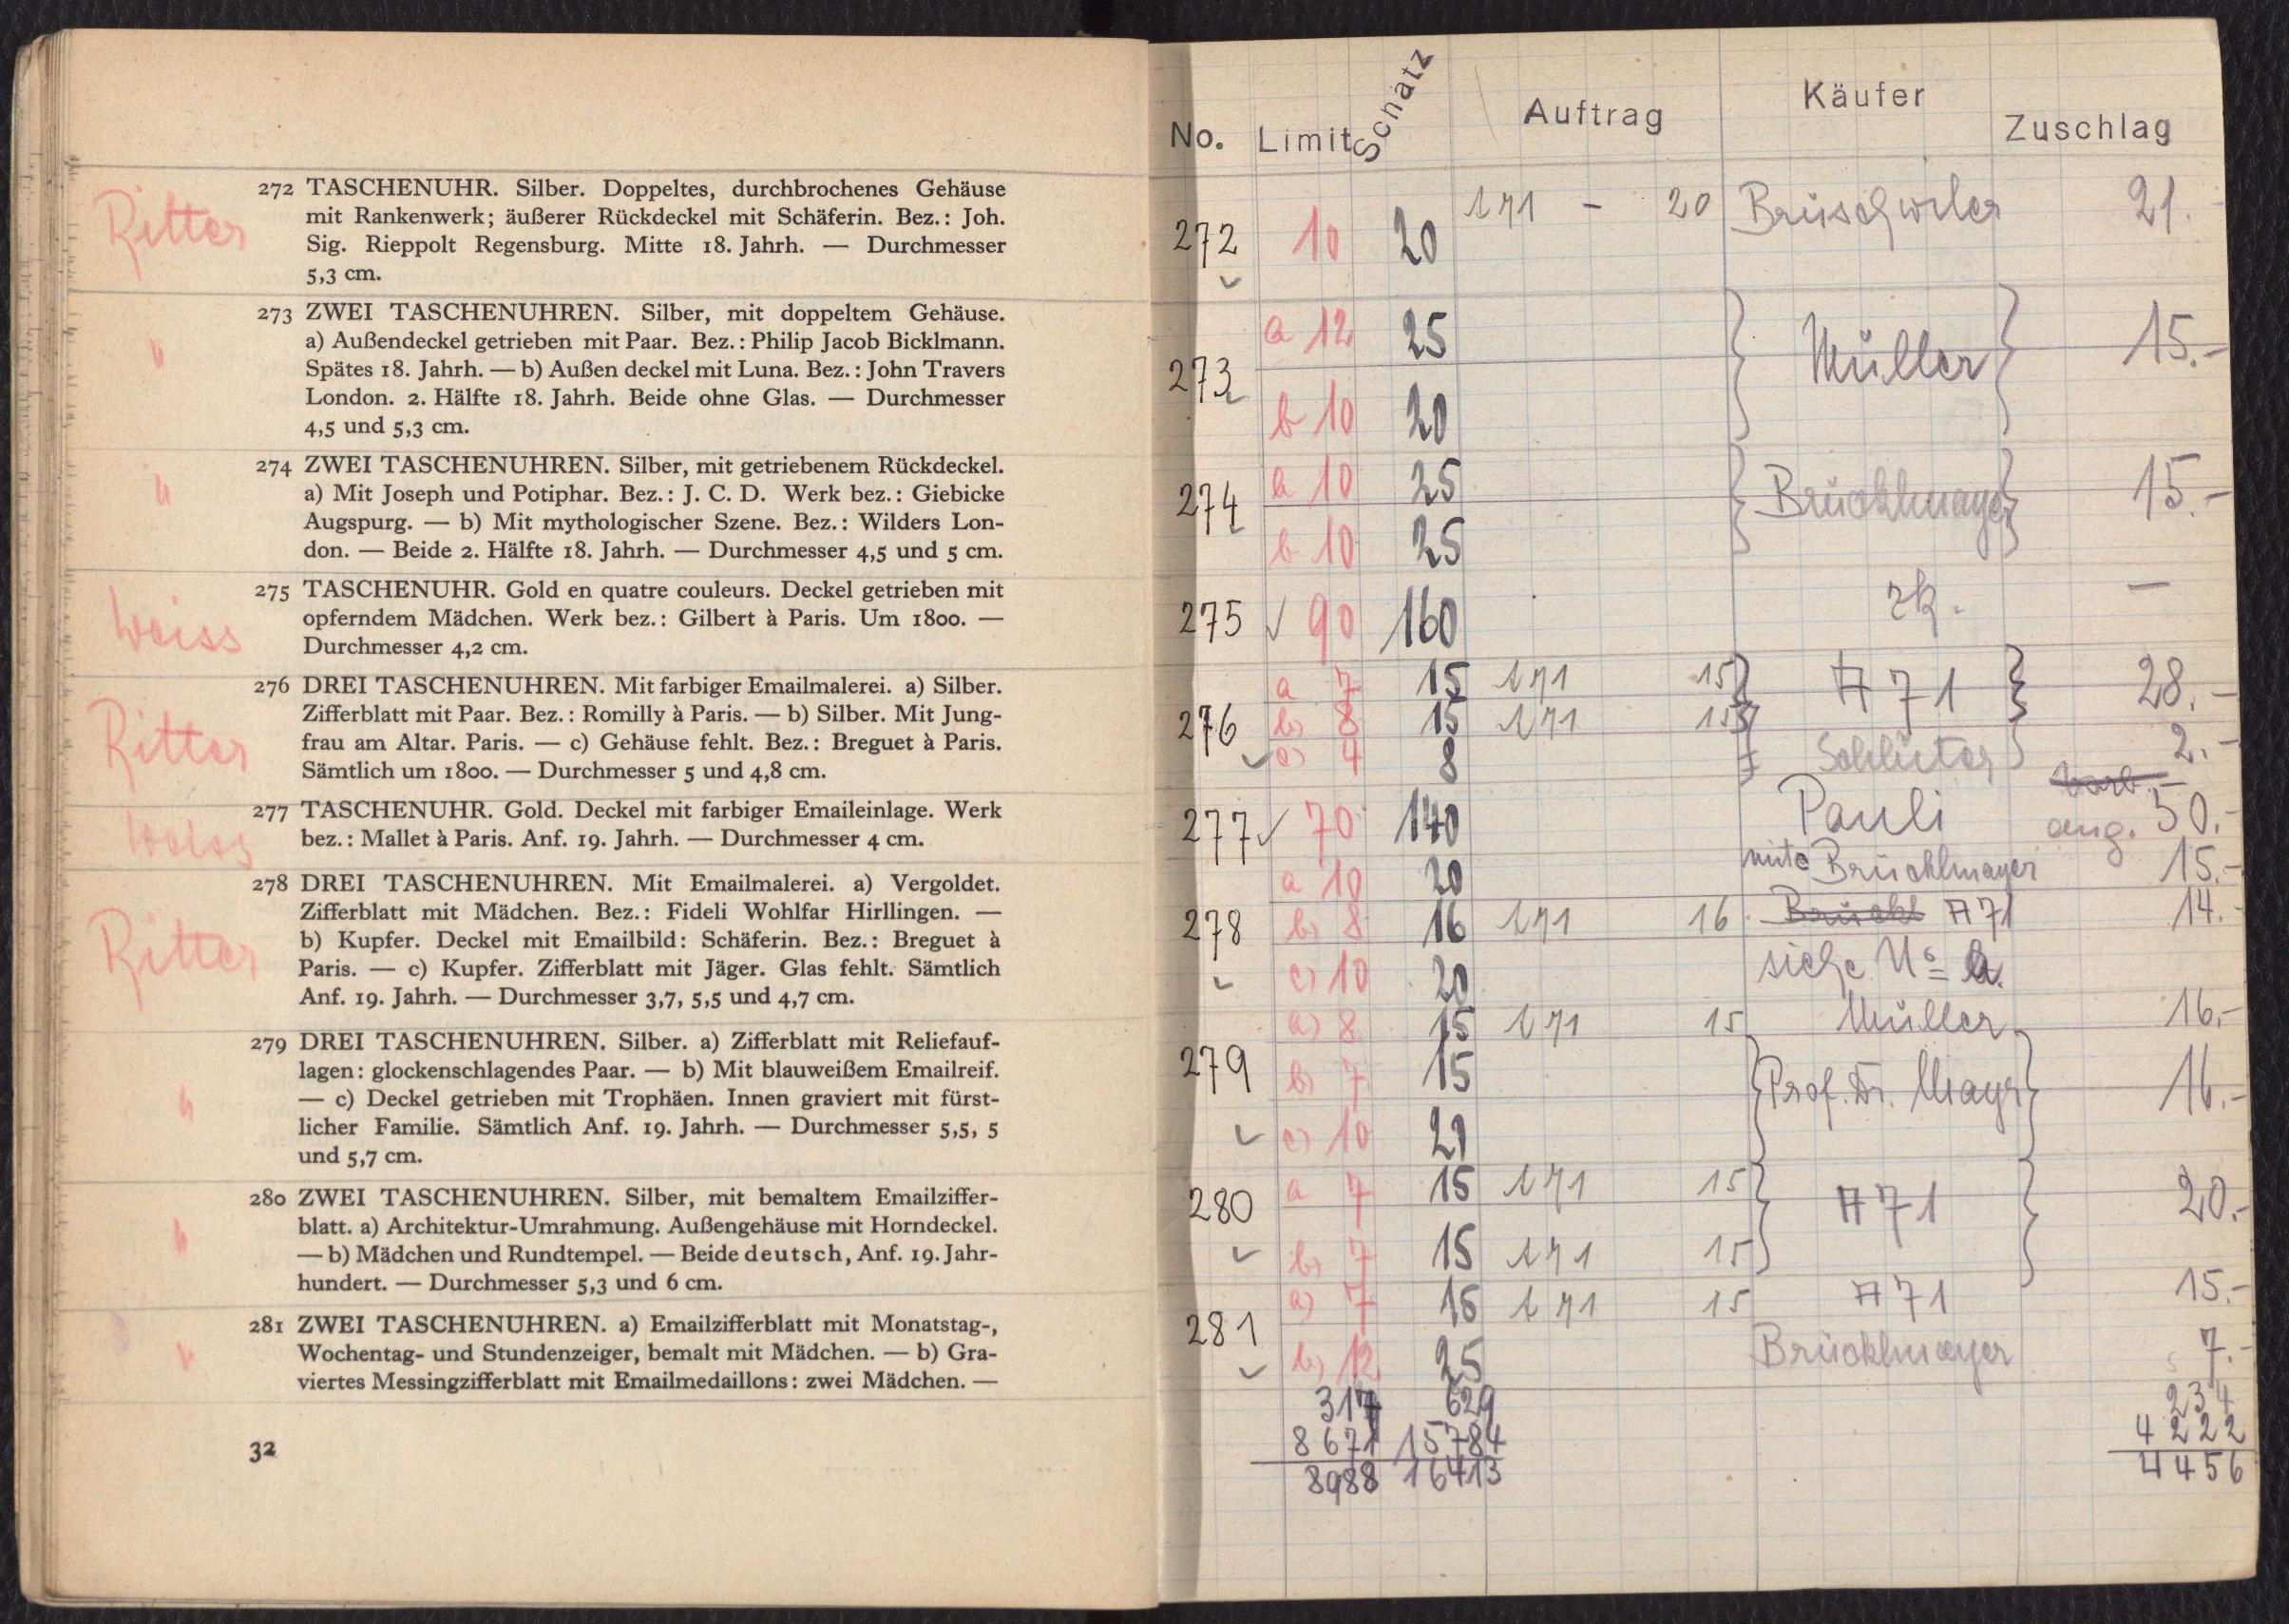 272 TASCHENUHR. Silber. Doppeltes, durchbrochenes Gehäuse
mit Rankenwerk; äußerer Rückdeckel mit Schäferin. Bez.: Joh.
Ritter
Sig. Rieppolt Regensburg. Mitte 18. Jahrh. — Durchmesser
5,3 cm.
273 ZWEI TASCHENUHREN. Silber, mit doppeltem Gehäuse.
a) Außendeckel getrieben mit Paar. Bez.: Philip Jacob Bicklmann.
"
Spätes 18. Jahrh. — b) Außen deckel mit Luna. Bez.: John Travers
London. 2. Hälfte 18. Jahrh. Beide ohne Glas. — Durchmesser
4,5 und 5,3 cm.
274 ZWEI TASCHENUHREN. Silber, mit getriebenem Rückdeckel.
" a) Mit Joseph und Potiphar. Bez.: J. C. D. Werk bez.: Giebicke
Augspurg. — b) Mit mythologischer Szene. Bez.: Wilders Lon-
don. — Beide 2. Hälfte 18. Jahrh. — Durchmesser 4,5 und 5 cm.
275 TASCHENUHR. Gold en quatre couleurs. Deckel getrieben mit
Weiss
opferndem Mädchen. Werk bez.: Gilbert à Paris. Um 1800. —
Durchmesser 4,2 cm.
276 DREI TASCHENUHREN. Mit farbiger Emailmalerei. a) Silber.
Zifferblatt mit Paar. Bez.: Romilly à Paris. — b) Silber. Mit Jung-
Ritter
frau am Altar. Paris. — c) Gehäuse fehlt. Bez.: Breguet à Paris.
Sämtlich um 1800. — Durchmesser 5 und 4,8 cm.
277 TASCHENUHR. Gold. Deckel mit farbiger Emaileinlage. Werk
Weiss
bez.: Mallet à Paris. Anf. 19. Jahrh. — Durchmesser 4 cm.
278 DREI TASCHENUHREN. Mit Emailmalerei. a) Vergoldet.
Zifferblatt mit Mädchen. Bez.: Fideli Wohlfar Hirllingen. —
Ritter
b) Kupfer. Deckel mit Emailbild: Schäferin. Bez.: Breguet à
Paris. — c) Kupfer. Zifferblatt mit Jäger. Glas fehlt. Sämtlich
Anf. 19. Jahrh. — Durchmesser 3,7, 5,5 und 4,7 cm.
279 DREI TASCHENUHREN. Silber. a) Zifferblatt mit Reliefauf-
lagen: glockenschlagendes Paar. — b) Mit blauweißem Emailreif.
" — c) Deckel getrieben mit Trophäen. Innen graviert mit fürst-
licher Familie. Sämtlich Anf. 19. Jahrh. — Durchmesser 5,5, 5
und 5,7 cm.
280 ZWEI TASCHENUHREN. Silber, mit bemaltem Emailziffer-
blatt. a) Architektur-Umrahmung. Außengehäuse mit Horndeckel.
" — b) Mädchen und Rundtempel. — Beide deutsch, Anf. 19. Jahr-
hundert. — Durchmesser 5,3 und 6 cm.
281 ZWEI TASCHENUHREN. a) Emailzifferblatt mit Monatstag-,
" Wochentag- und Stundenzeiger, bemalt mit Mädchen. — b) Gra-
viertes Messingzifferblatt mit Emailmedaillons: zwei Mädchen. —
32
No. Limit Schätz Auftrag Käufer Zuschlag
272 10 20 171 – 20 Brüschwiler 21.
273 a 12 25 Müller 15.–
b 10 20
274 a 10 25 Brücklmayer 15.–
b 10 25
275 90 160 zk. —
276 a 7 15 171 15 A 71 28.–
b) 8 15 171 15
c) 4 8 Schlüter 2.–
277 70 140 Pauli ang. 50.–
278 a 10 20 Brücklmayer 15.–
b) 8 16 171 16 Brückl A 71 14.–
c) 10 20 siehe No a.
279 a) 8 15 171 15 Müller 16.–
b) 7 15 Prof. Dr. Mayr 16.–
c) 10 21
280 a 7 15 171 15 A 71 20.–
b) 7 15 171 15
281 a) 7 15 171 15 A 71 15.–
b) 12 25 Brücklmayer 7.–
317 629 234
8671 15784 4222
8988 16413 4456